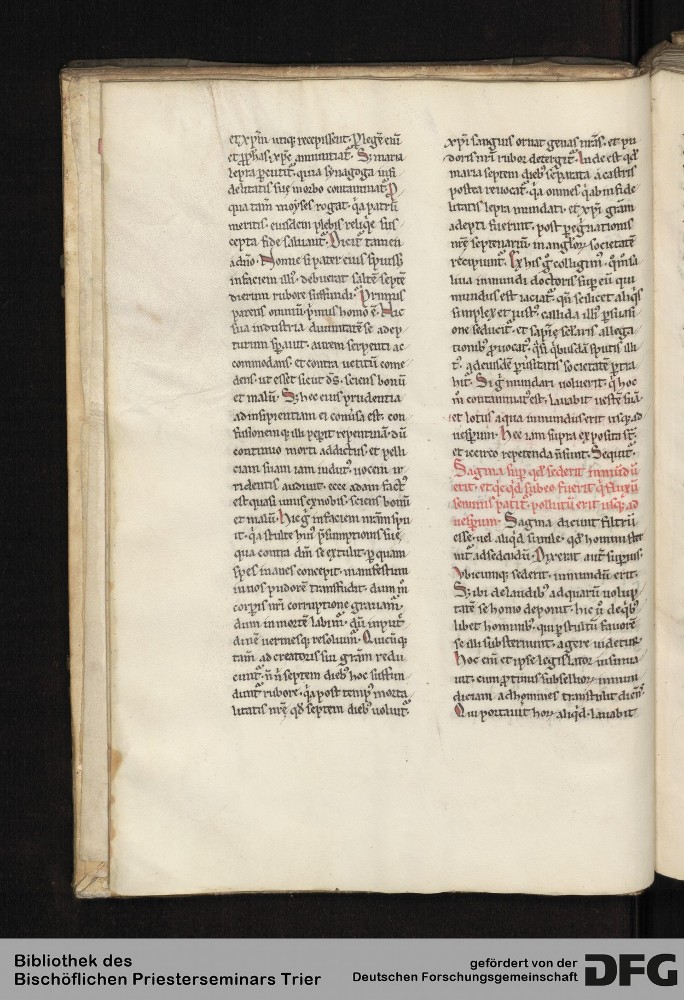 et xpm utiq; recepissent. P legē eni
et ꝓphas xpc annuntiat. S; maria
lepra pcutit. quia synagoga infi
delitatis suę morbo contaminat. P
qua tam moyses rogat. qa patrū
meritis. eusdem plebis reliqe sus
cepta fide saluant. Dicit tamen
ad eo. Nonne si pater eius spuiss
in faciem illi. debuerat salte septē
dierum rubore suffundi. Primus
parens omniū pmus homo ē. Hic
sua industria diuinitatē se adep
turum sperauit. aurem serpenti ac
commodans. et contra uetitū come
dens. ut esset sicut ds. sciens bonū
et malū. S; hec eius prudentia
ad insipientiam ei conuersa est. con
fusionemq; illi pepit repentinā. dū
continuo morti addictus. et pelli
ciam suam iam indut. uocem ir
ridentis audiuit. ecce adam fact
est quasi unus ex nobis. sciens bonū
et malū. Hic g in faciem nrām spu
it. qa stulte hui psumptionis sue,
qua contra dm se extulit. p quam
spes inanes concepit. manifestum
in nos pudorē transfudit. dum in
corpis nri corruptione grauam.
dum in mortē labim. dū in put
dinē uermesq; resoluim. Quicūq;
tam ad creatoris sui grām redu
cunt. n n septem dieb hoc suffun
dunt rubore. qa post temp morta
litatis nrę qd septem dieb uoluit.
xpi sanguis ornat genas nras. et pu
doris nri rubor detergit. Inde est qd
maria septem dieb separata a castris
postea reuocat. qa omnes q ab infide
litatis lepra mundati. et xpi grām
adepti fuerint. post pegrinationis
nrę septenariū in anglor societatē
recipiunt. Ex his g colligim. qm sa
liua inmundi doctoris sup eū qui
mundus est iaciat. qn scilicet aliqs
simplex et iust. callida illi psuasi
one seducit. et sapię sclaris allega
tionib puocat. qsi qbusdā sputis illi
t. ad eiusdē pusitatis societatē ptra
hit. Si g mundari uoluerit. q hoc
m contaminat est. lauabit uestē suā.
et lotus aqua inmundus erit usq; ad
uespum. Hec iam supra exposita st.
et iccirco repetenda n sunt. Sequit.
Sagma sup qd sederit inmūdū
erit. et qcqd sub eo fuerit q fluxū
seminis patit. pollutū erit usq; ad
uesperum. Sagma dicunt filtrū
esse. uel aliqd simile. qd homi mister
nit ad sedendū. Dixerat aut superius.
Vbicumq; sederit. inmundū erit.
S; ibi de laudib. ad quarū uolup
tatē se homo deponit. hic u de qb
libet hominib. qui p stultū fauorē
se illi substernunt. agere uidetur.
Hoc eni et ipse legislator insinua
uit. cum ptinus subselliū inmun
diciam ad homines transtulit dicens.
Qui portauit hor aliqd. lauabit
Bibliothek des
Bischöflichen Priesterseminars Trier
gefördert von der
Deutschen Forschungsgemeinschaft
DFG